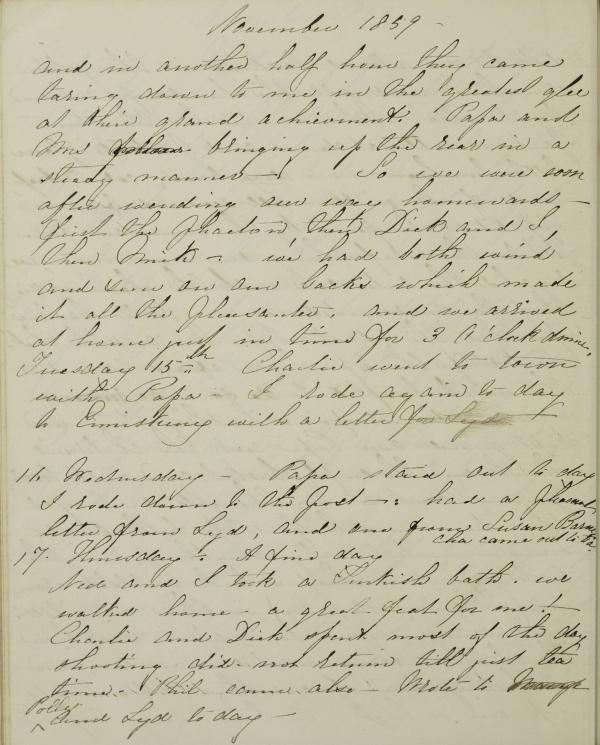 November 1859 -
and in another half hour they came
taring down to me in the greatest glee
at their grand achievement. Papa and
Mrs bringing up the rear in a
steady manner - So we were soon
after wending our way homewards -
first the phaeton then Dick and I,
then Mick - we had both wind
and sun on our backs which made
it all the pleasanter, and we arrived
at home just in time for 3 O'clock dinner.
Tuesday 15th Charlie went to town
with Papa - I rode again to day
to with a letter for Lyd
16 Wednesday - Papa staid out to day
I rode down to the post - : had a pleasant
letter from Lyd, and one from Susan
Cha came out to tea
17. Thursday - A fine day
Ned and I took a Turkish bath. we
walked home - a great feat for me!
Charlie and Dick spent most of the day
shooting did not return till just tea
time - Phil came also - Wrote to
and Lyd to day -